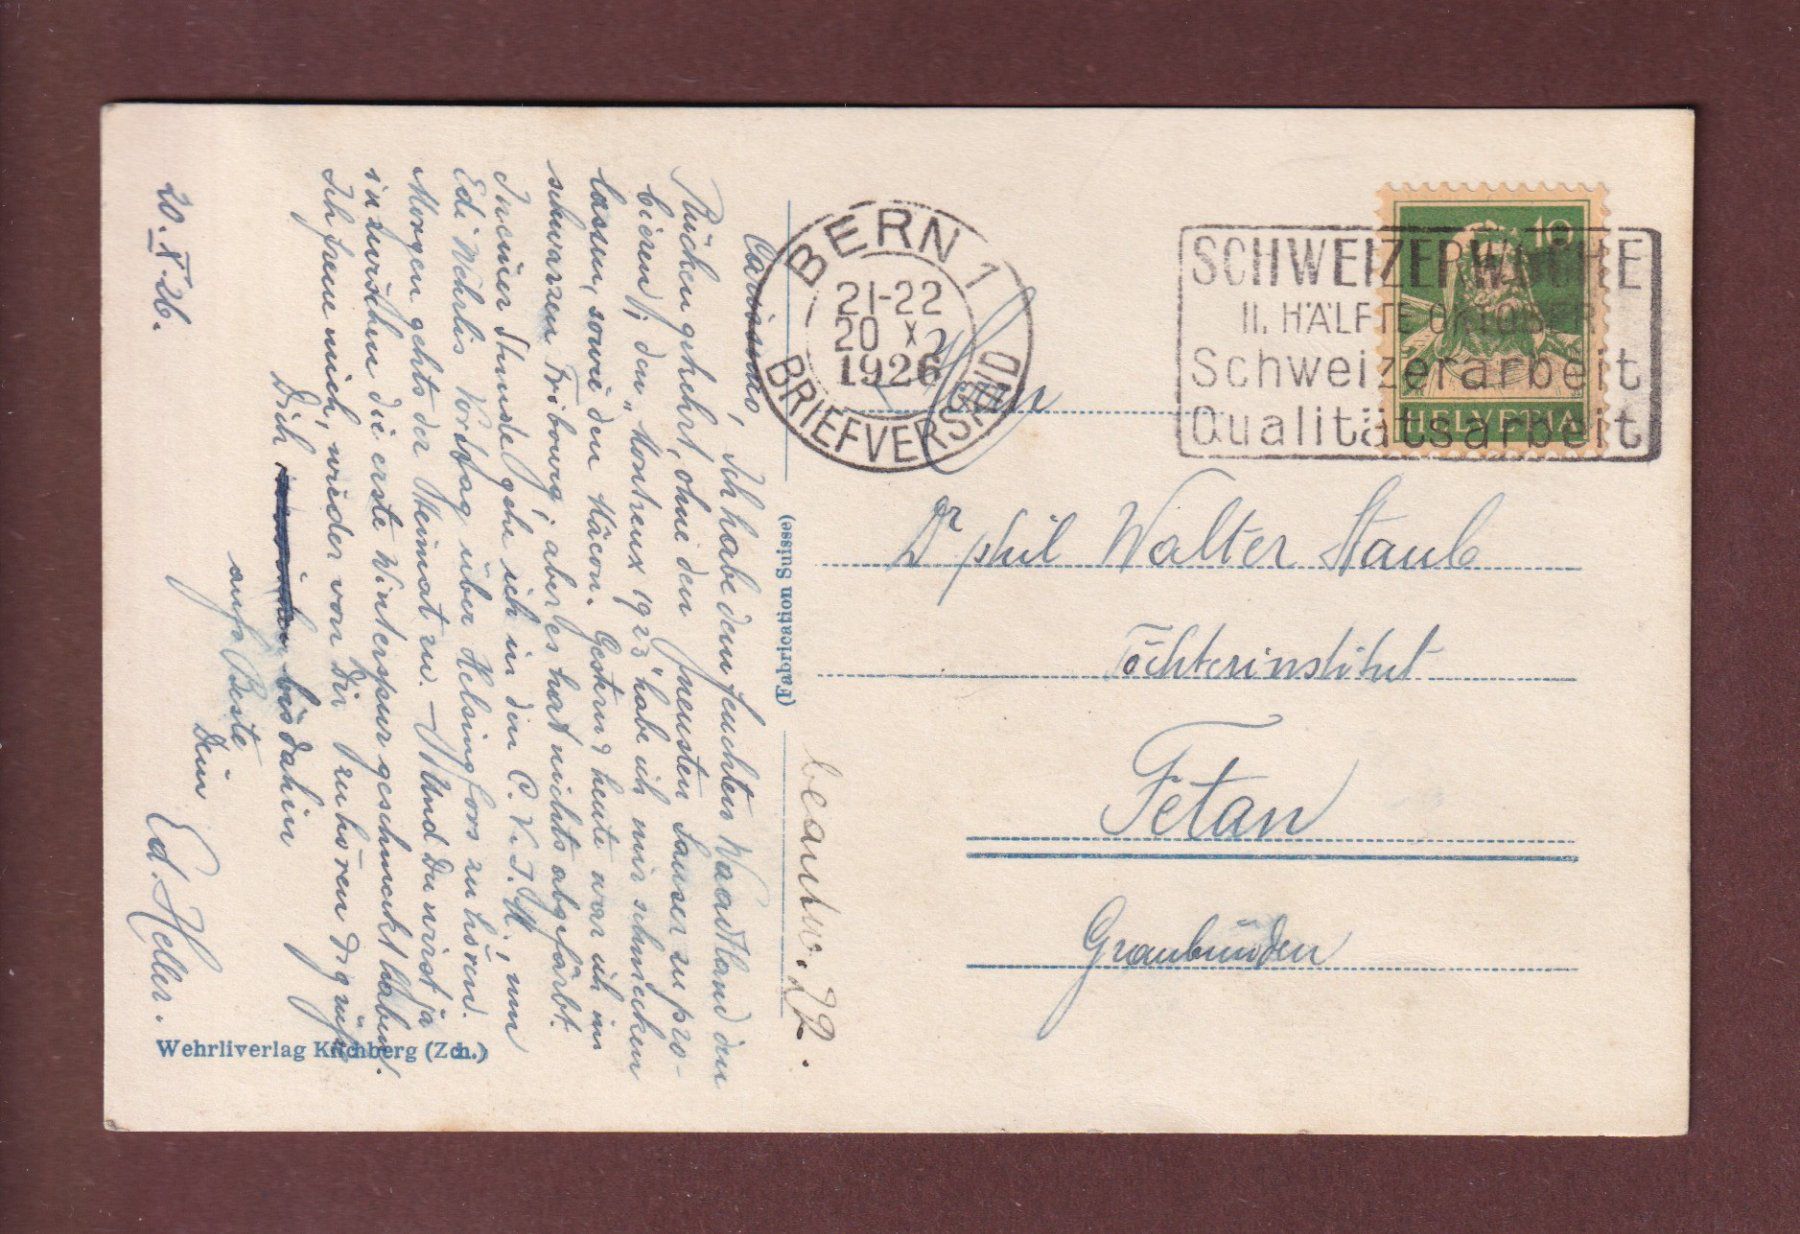 20. X. 26.
Carissimo,
Ich habe dem feuchten Waadtland den
Rücken gekehrt, ohne den neusten Sauser zu pro-
bieren; den „Montreux 1923" habe ich mir schmecken
lassen, sowie den Mâcon. Gestern & heute war ich im
schwarzen Fribourg; aber es hat nichts abgefärbt.
In einer Stunde gehe ich in den C.V.J.M., um
Edi Wehrlis Vortrag über Helsingfors zu hören.
Morgen gehts der Heimat zu. – Und Du wirst ja
inzwischen die erste Winterspur geschmeckt haben.
Ich freue mich, wieder von Dir zu hören & grüsse
Dich bis dahin
aufs Beste
Dein
Ed. Heller.
Wehrliverlag Kilchberg (Zch.)
(Fabrication Suisse)
beantw. 22.
BERN 1
21-22
20 X
1926
BRIEFVERSAND
SCHWEIZERWOCHE
II. HÄLFTE OKTOBER
Schweizerarbeit
Qualitätsarbeit
10
HELVETIA
Hrn
Dr phil Walter Staub
Töchterinstitut
Fetan
Graubünden